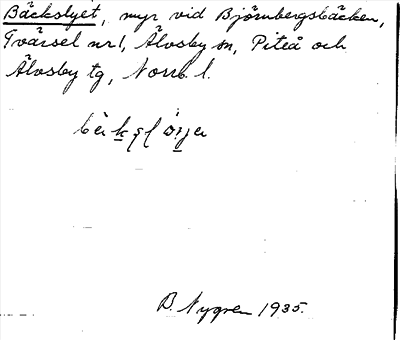 Bäckslyet, myr vid Björnbergsbäcken,
Tvärsel nr1, Älvsby sn, Piteå och
Älvsby tg, Norrb. l.
B. Nygren 1935.